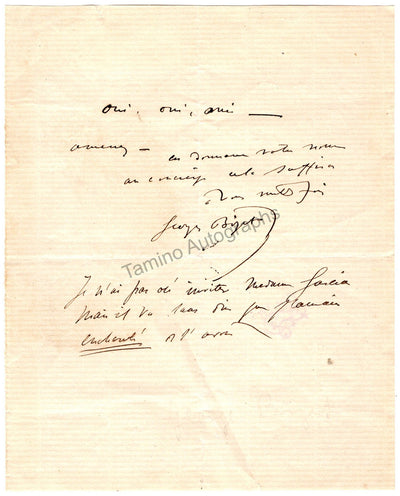 oui, oui, oui —
amenez — en donnant votre nom
au concierge cela suffira
mille fois
Georges Bizet
Tamino Autographs
Je n'ai pas osé inviter Madame Garcia
Mais il va sans dire que je serais
enchanté de l'avoir